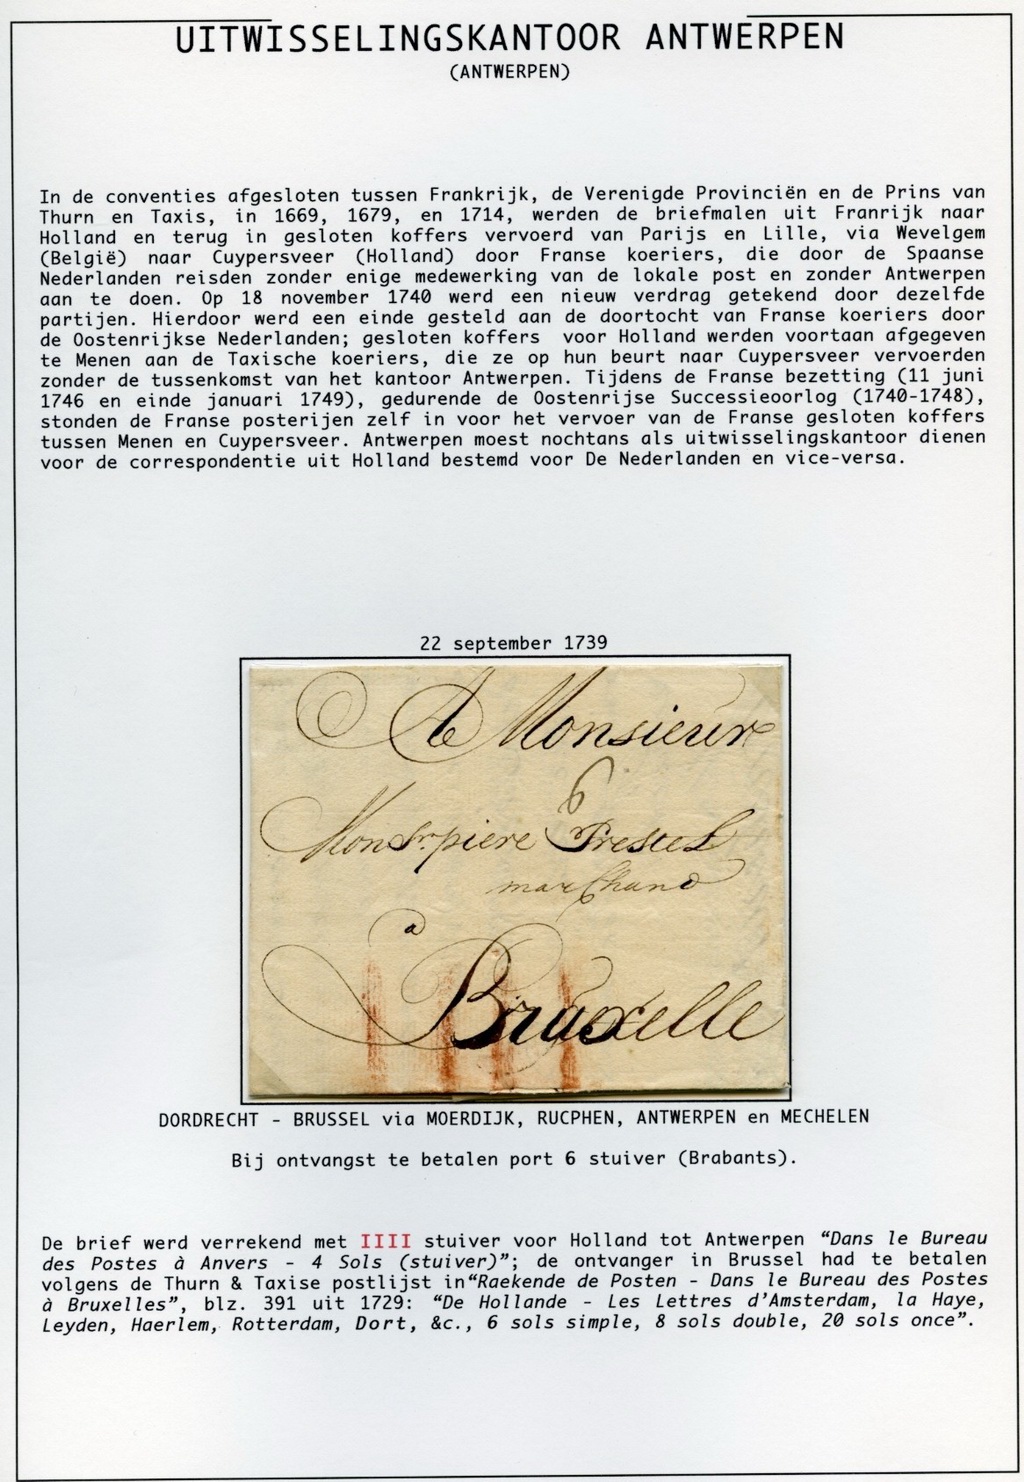 UITWISSELINGSKANTOOR ANTWERPEN
(ANTWERPEN)
In de conventies afgesloten tussen Frankrijk, de Verenigde Provinciën en de Prins van
Thurn en Taxis, in 1669, 1679, en 1714, werden de briefmalen uit Franrijk naar
Holland en terug in gesloten koffers vervoerd van Parijs en Lille, via Wevelgem
(België) naar Cuypersveer (Holland) door Franse koeriers, die door de Spaanse
Nederlanden reisden zonder enige medewerking van de lokale post en zonder Antwerpen
aan te doen. Op 18 november 1740 werd een nieuw verdrag getekend door dezelfde
partijen. Hierdoor werd een einde gesteld aan de doortocht van Franse koeriers door
de Oostenrijkse Nederlanden; gesloten koffers voor Holland werden voortaan afgegeven
te Menen aan de Taxische koeriers, die ze op hun beurt naar Cuypersveer vervoerden
zonder de tussenkomst van het kantoor Antwerpen. Tijdens de Franse bezetting (11 juni
1746 en einde januari 1749), gedurende de Oostenrijse Successieoorlog (1740-1748),
stonden de Franse posterijen zelf in voor het vervoer van de Franse gesloten koffers
tussen Menen en Cuypersveer. Antwerpen moest nochtans als uitwisselingskantoor dienen
voor de correspondentie uit Holland bestemd voor De Nederlanden en vice-versa.
22 september 1739
A Monsieur
6
Monsr. piere Prestel
marchand
a
Bruxelle
DORDRECHT - BRUSSEL via MOERDIJK, RUCPHEN, ANTWERPEN en MECHELEN
Bij ontvangst te betalen port 6 stuiver (Brabants).
De brief werd verrekend met IIII stuiver voor Holland tot Antwerpen “Dans le Bureau
des Postes à Anvers - 4 Sols (stuiver)”; de ontvanger in Brussel had te betalen
volgens de Thurn & Taxise postlijst in“Raekende de Posten - Dans le Bureau des Postes
à Bruxelles”, blz. 391 uit 1729: “De Hollande - Les Lettres d’Amsterdam, la Haye,
Leyden, Haerlem, Rotterdam, Dort, &c., 6 sols simple, 8 sols double, 20 sols once”.